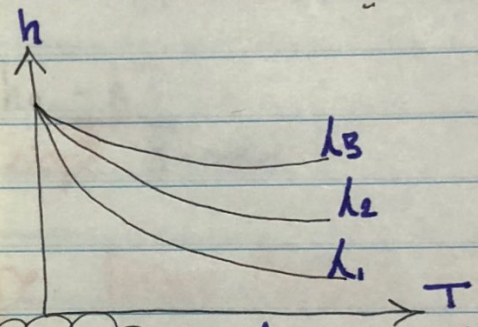 h
λ3
λ2
λ1
T